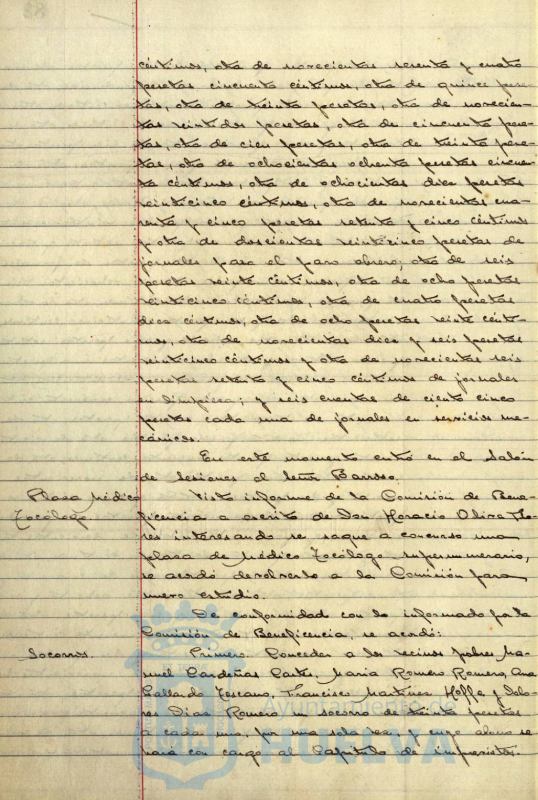 céntimos, otra de novecientas sesenta y cuatro
pesetas cincuenta céntimos, otra de quince pese-
tas, otra de treinta pesetas, otra de novecien-
tas veintidos pesetas, otra de cincuenta pese-
tas, otra de cien pesetas, otra de treinta pese-
tas, otra de ochocientas ochenta pesetas cincuen-
ta céntimos, otra de ochocientas diez pesetas
veinticinco céntimos, otra de novecientas cua-
renta y cinco pesetas setenta y cinco céntimos
y otra de doscientas veinticinco pesetas de
jornales para el paro obrero; otra de seis
pesetas veinte céntimos, otra de ocho pesetas
veinticinco céntimos, otra de cuatro pesetas
diez céntimos, otra de ocho pesetas veinte cénti-
mos, otra de novecientas diez y seis pesetas
veinticinco céntimos y otra de novecientas seis
pesetas setenta y cinco céntimos de jornales
en limpieza; y seis cuentas de ciento cinco
pesetas cada una de jornales en servicios me-
cánicos.
En este momento entró en el Salón
de Sesiones el Señor Barroso.
Plaza Médico
Tocólogo.
Visto informe de la Comisión de Bene-
ficencia a escrito de Don Horacio Oliva Flo-
res interesando se saque a concurso una
plaza de Médico Tocólogo supernumerario,
se acordó devolverlo a la Comisión para
nuevo estudio.
De conformidad con lo informado por la
Comisión de Beneficencia, se acordó:
Socorros.
Primero. Conceder a los vecinos pobres Ma-
nuel Cardeñas Cortés, María Romero Romero, Ana
Gallardo Toscano, Francisco Martínez y Dolo-
res Díaz Romero un socorro de treinta pesetas
a cada uno, por una sola vez, y cuyo abono se
hará con cargo al Capítulo de imprevistos.
Ayuntamiento de
HUELVA